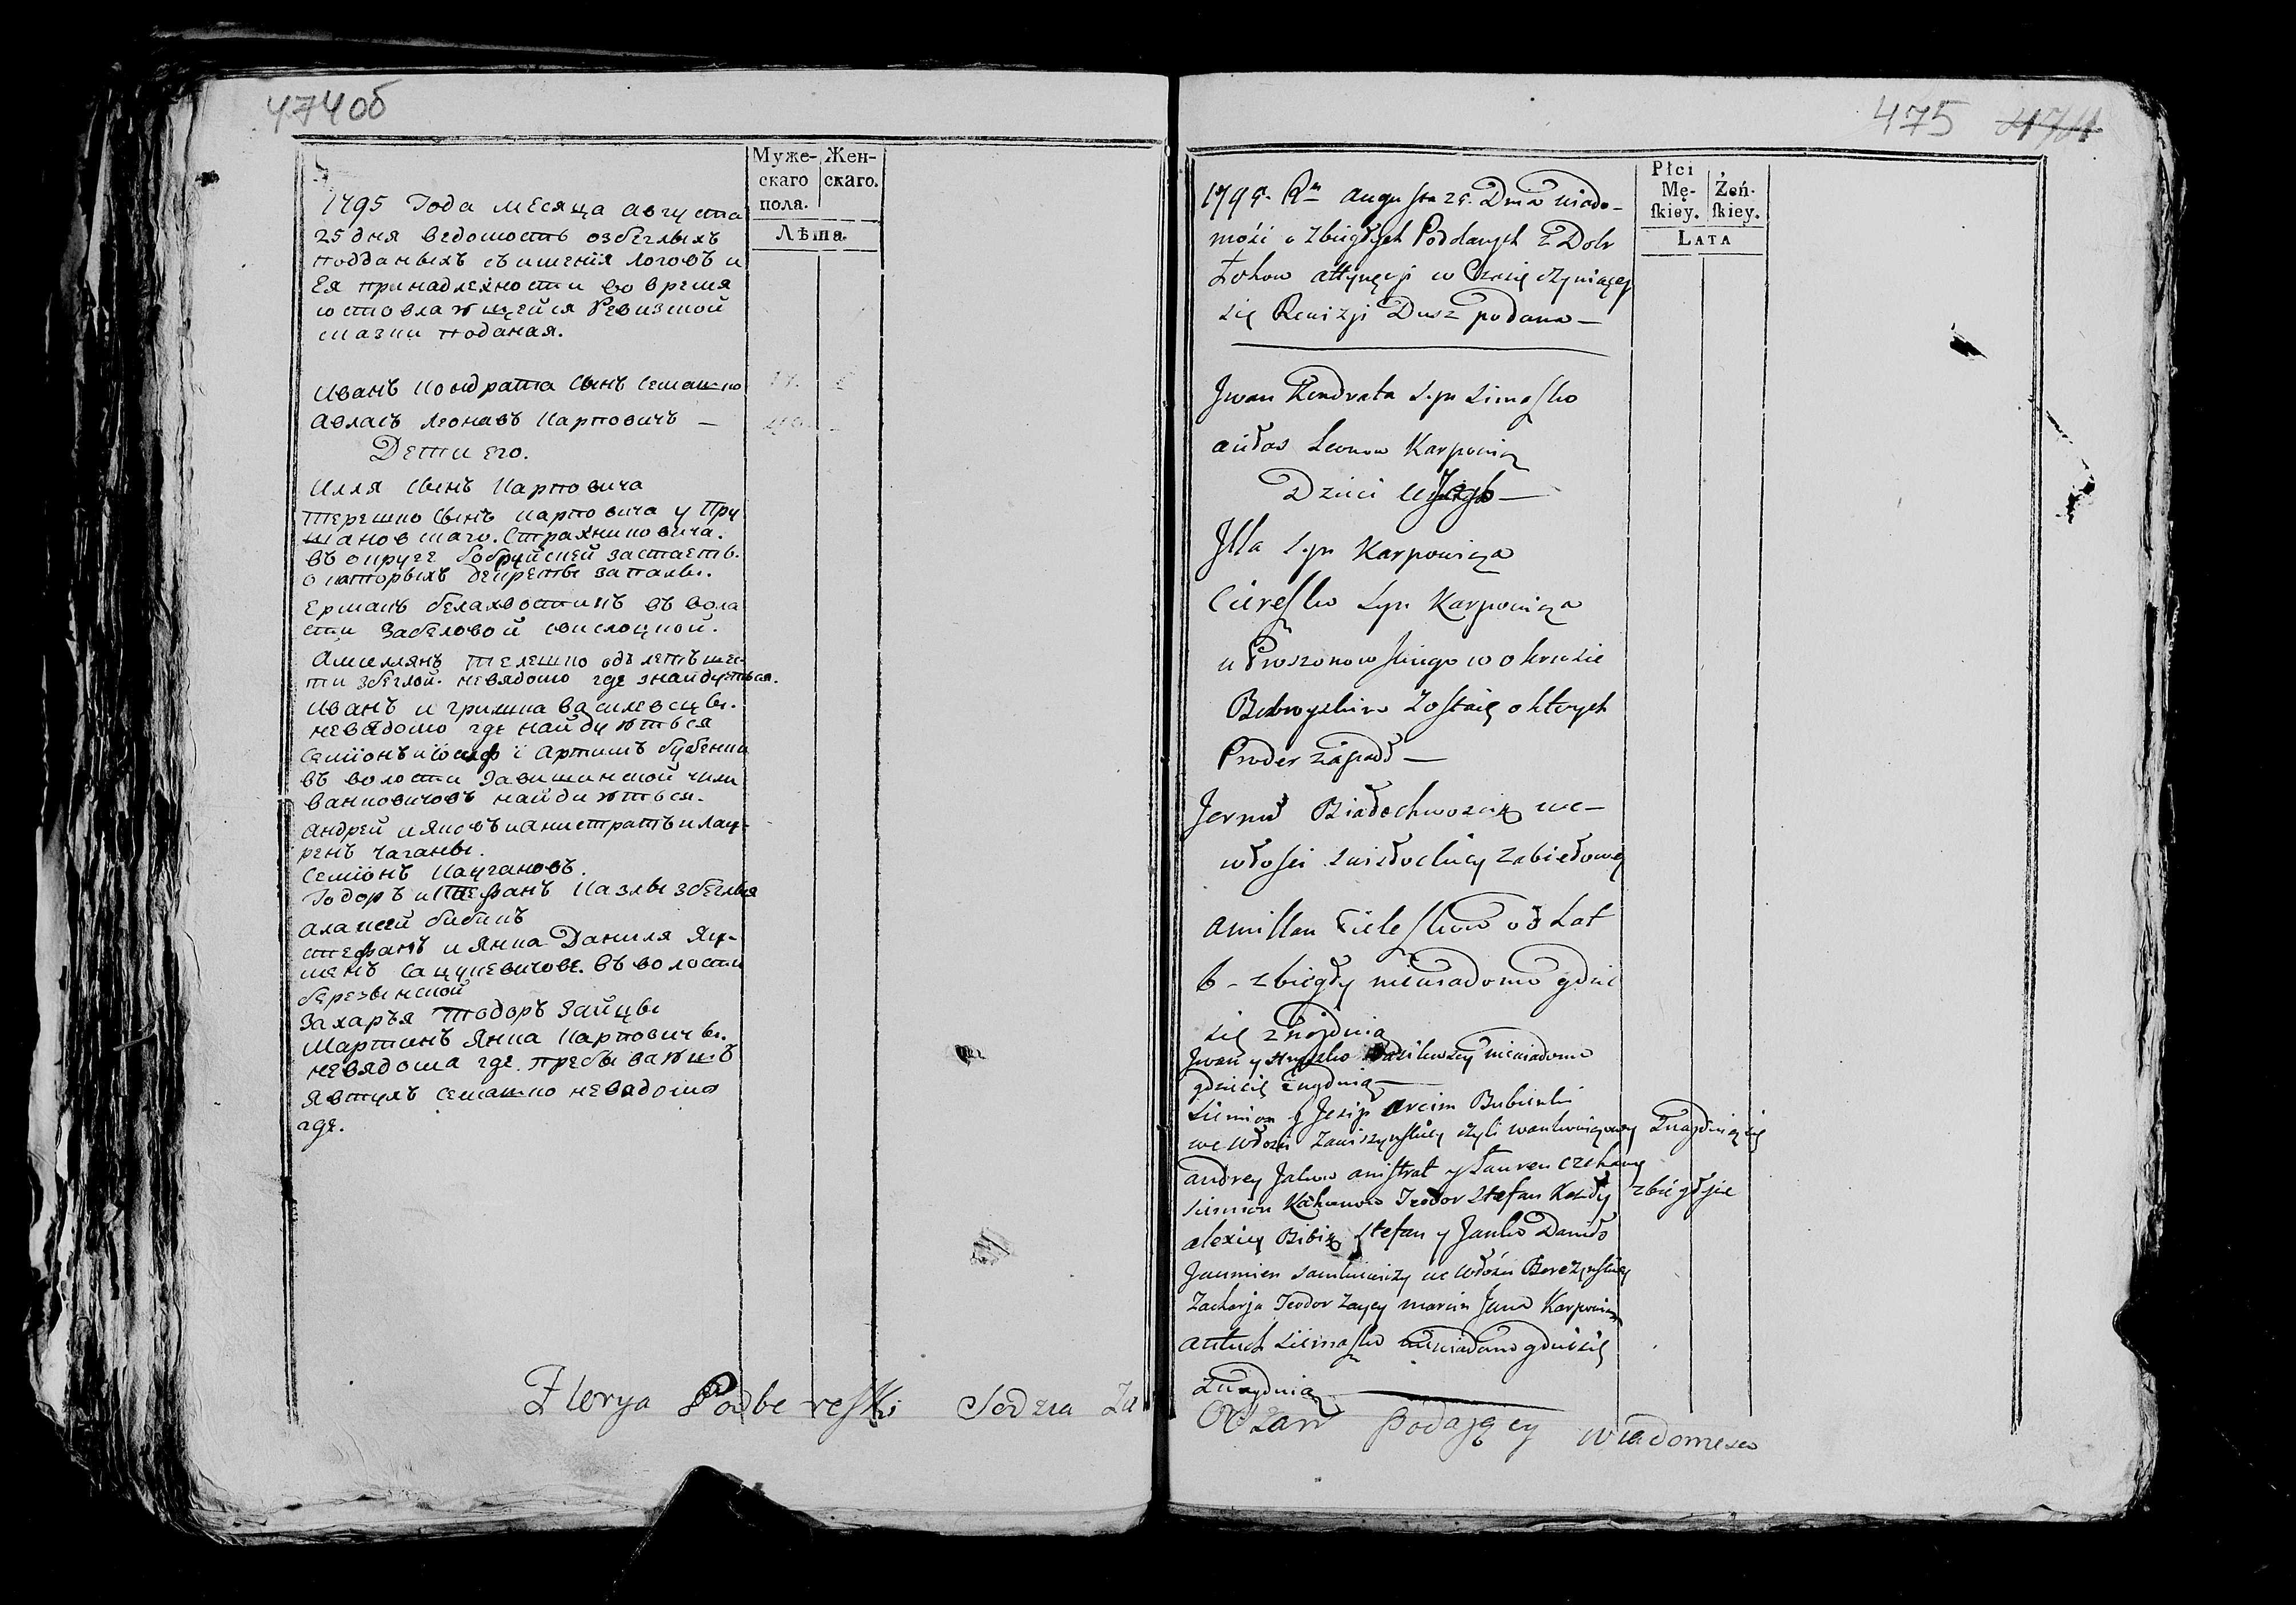 474об
Муже- Жен-
скаго скаго.
пола.
Лѣта.
1795 Года месяца августа
25 дня ведомость озбеглыхъ
подданыхъ съ имения логовъ и
Ея принадлежности во время
состовляющейся Ревизской
сказки поданая.
Иванъ Кондрата сынъ Семашко
Авласъ Леоновъ Карповичъ —
Дети его.
Илля сынъ Карповича
Терешко сынъ Карповича у Пру
шановскаго.
въ округе бобруйской застаеть.
о которыхъ декреты запалы.
Ермакъ белахвостикъ въ вола
сти Забеловой свислоцкой.
Амиллянъ телешко одъ летъ шес
ти збеглой. невядомо где знайдуеться.
Иванъ и гришка василевсцы.
невядомо где найдуються
Семионъ и иосиф і Артимъ бубенки
въ волости Завишинской чили
ванковичовъ найдиються.
андрей и яковъ и анистратъ и лау-
ренъ чаганы.
Семионъ Каугановъ.
Тодоръ и Стефанъ Казлы збеглыя
алаксей бибикъ
стефанъ и Янка Данила Яу-
менъ сацукевичове. въ волости
березынской
Захарья Тодоръ Зайцы
Мартинъ Янка Карповичы.
невядома где. пребываютъ
Явтухъ Семашко невадома
где.
Florya Podbereski Sodzia Za
475 474
Płci
Mę- Żeń-
skiey. skiey.
LATA
1795. Ru augusta 25. Dnia wiado-
mość o zbiegłych Poddanych z Dobr
Łohow attynęcyi w Czasię czyniącey
się Rewizji Dusz podana —
Jwan Kondrata Syn Simaszko
aułas Leonow Karpowicz
Dzieci
Jlla Syn Karpowicza
Ciereszko Syn Karpowicza
u Proszonowskiego w okruzie
Bobroyskim zostaię o ktorych
zapadł —
Białochwoscik we —
włosci Swisłockiey Zabiełowey
amillan Cieleszko od Lat
6 - zbiegły niewiadomo gdzie
się znajdnia
Jwan y Hryszko Wasilewscy niewiadomo
gdzie się znaydnia —
Siemion y Jozip Arcim Bubienki
we włosci Zawiszynskiey czyli wankowiczowey Znaydniąsię
andrey Jakow anistrat y Łauren Czehany
Siemion Kahanow Teodor Stefan Kozły zbiegłyie
alexiey Bibik Stefan y Janko Daniło
Jaumien sawkiewiczy we włosci Berezynskiey
Zacharja Teodor Zaycy marcin Janko Karpowicz
Siemaszko niewiadomo gdzie się
znaydnia —
podaję cy wiadomesc